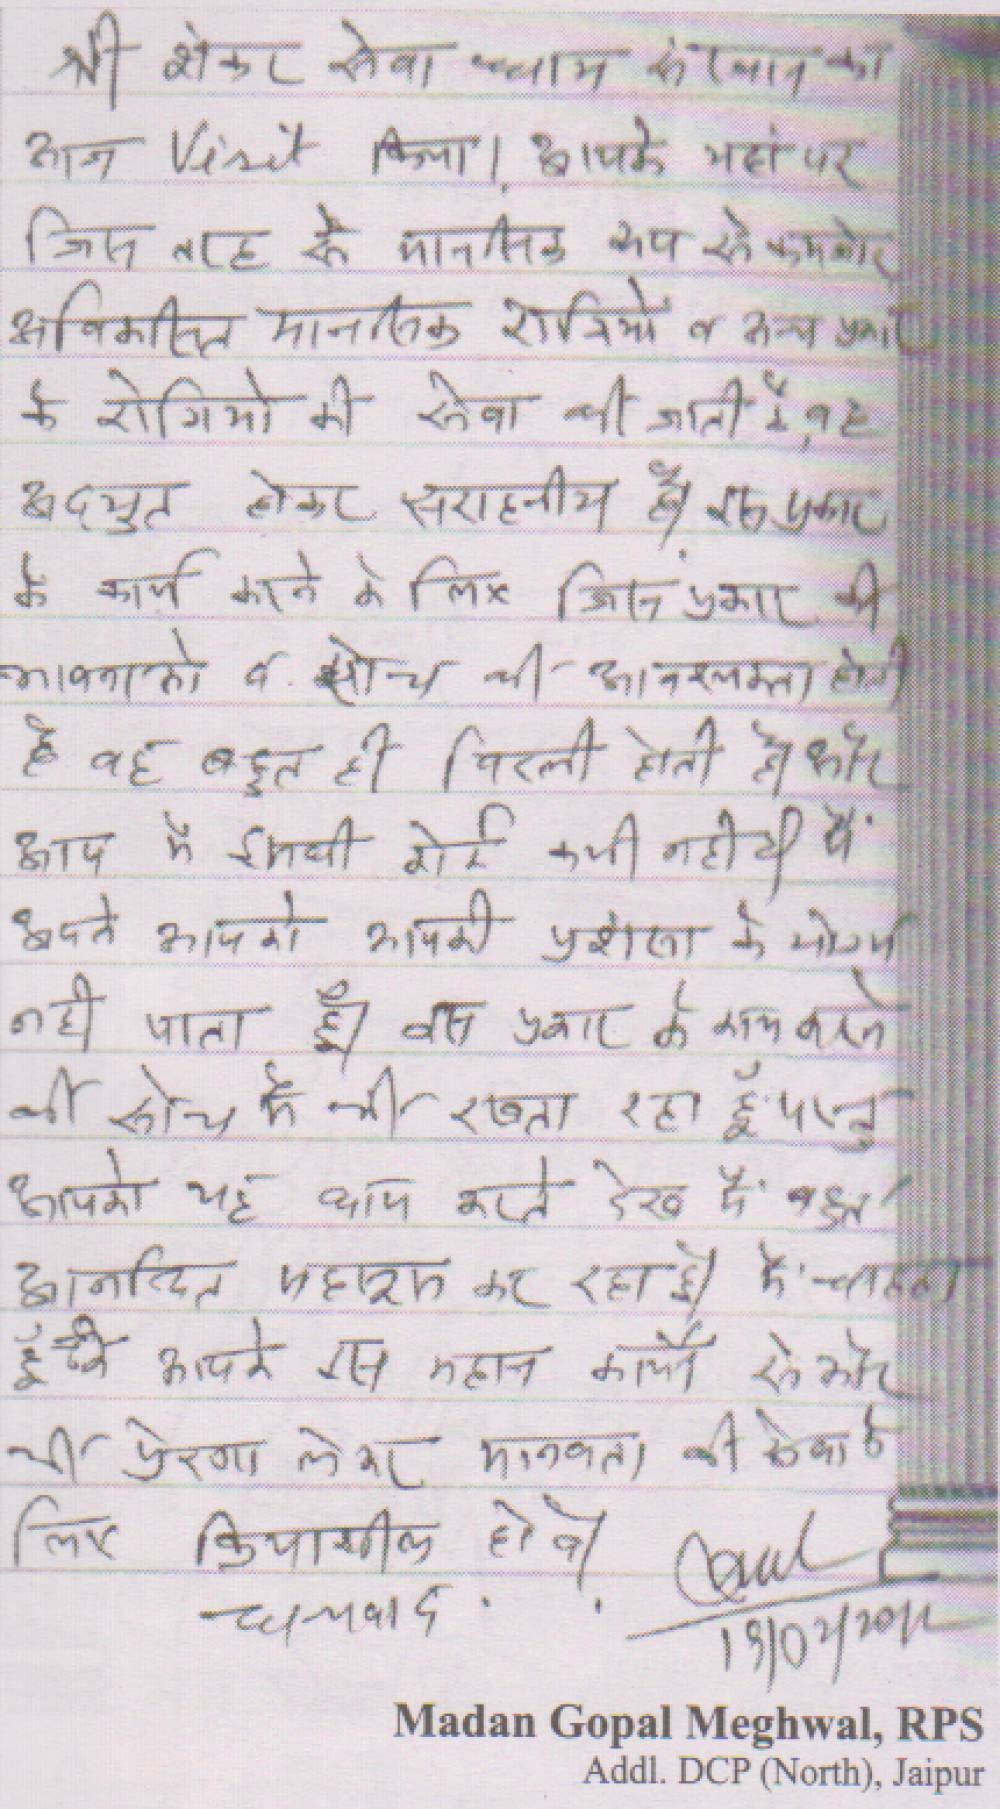 श्री शंकर सेवा धाम संस्थान का
आज Visit किया। आपके यहां पर
जिस तरह से मानसिक रूप से कमजोर
अविकसित मानसिक रोगियों व अन्य प्रकार
के रोगियो की सेवा की जाती है, वह
अदभुत होकर सराहनीय है। इस प्रकार
के कार्य करने के लिए जिस प्रकार की
भावनाओ व सोच की आवश्यकता होती
है वह बहुत ही विरली होती है। और
आप में इसकी कोई कमी नही थी मैं
अपने आपको आपकी प्रशंसा के योग्य
नही पाता हूँ। इस प्रकार के काम करने
की सोच मैं भी रखता रहा हूँ परन्तु
आपको यह काम करते देख मैं बहुत
आनन्दित महसूस कर रहा हूँ। मैं चाहता
हूँ कि आपके इस महान कार्य से और
भी प्रेरणा लेकर मानवता की सेवा के
लिए क्रियाशील होवे।
धन्यवाद
Madan Gopal Meghwal, RPS
Addl. DCP (North), Jaipur